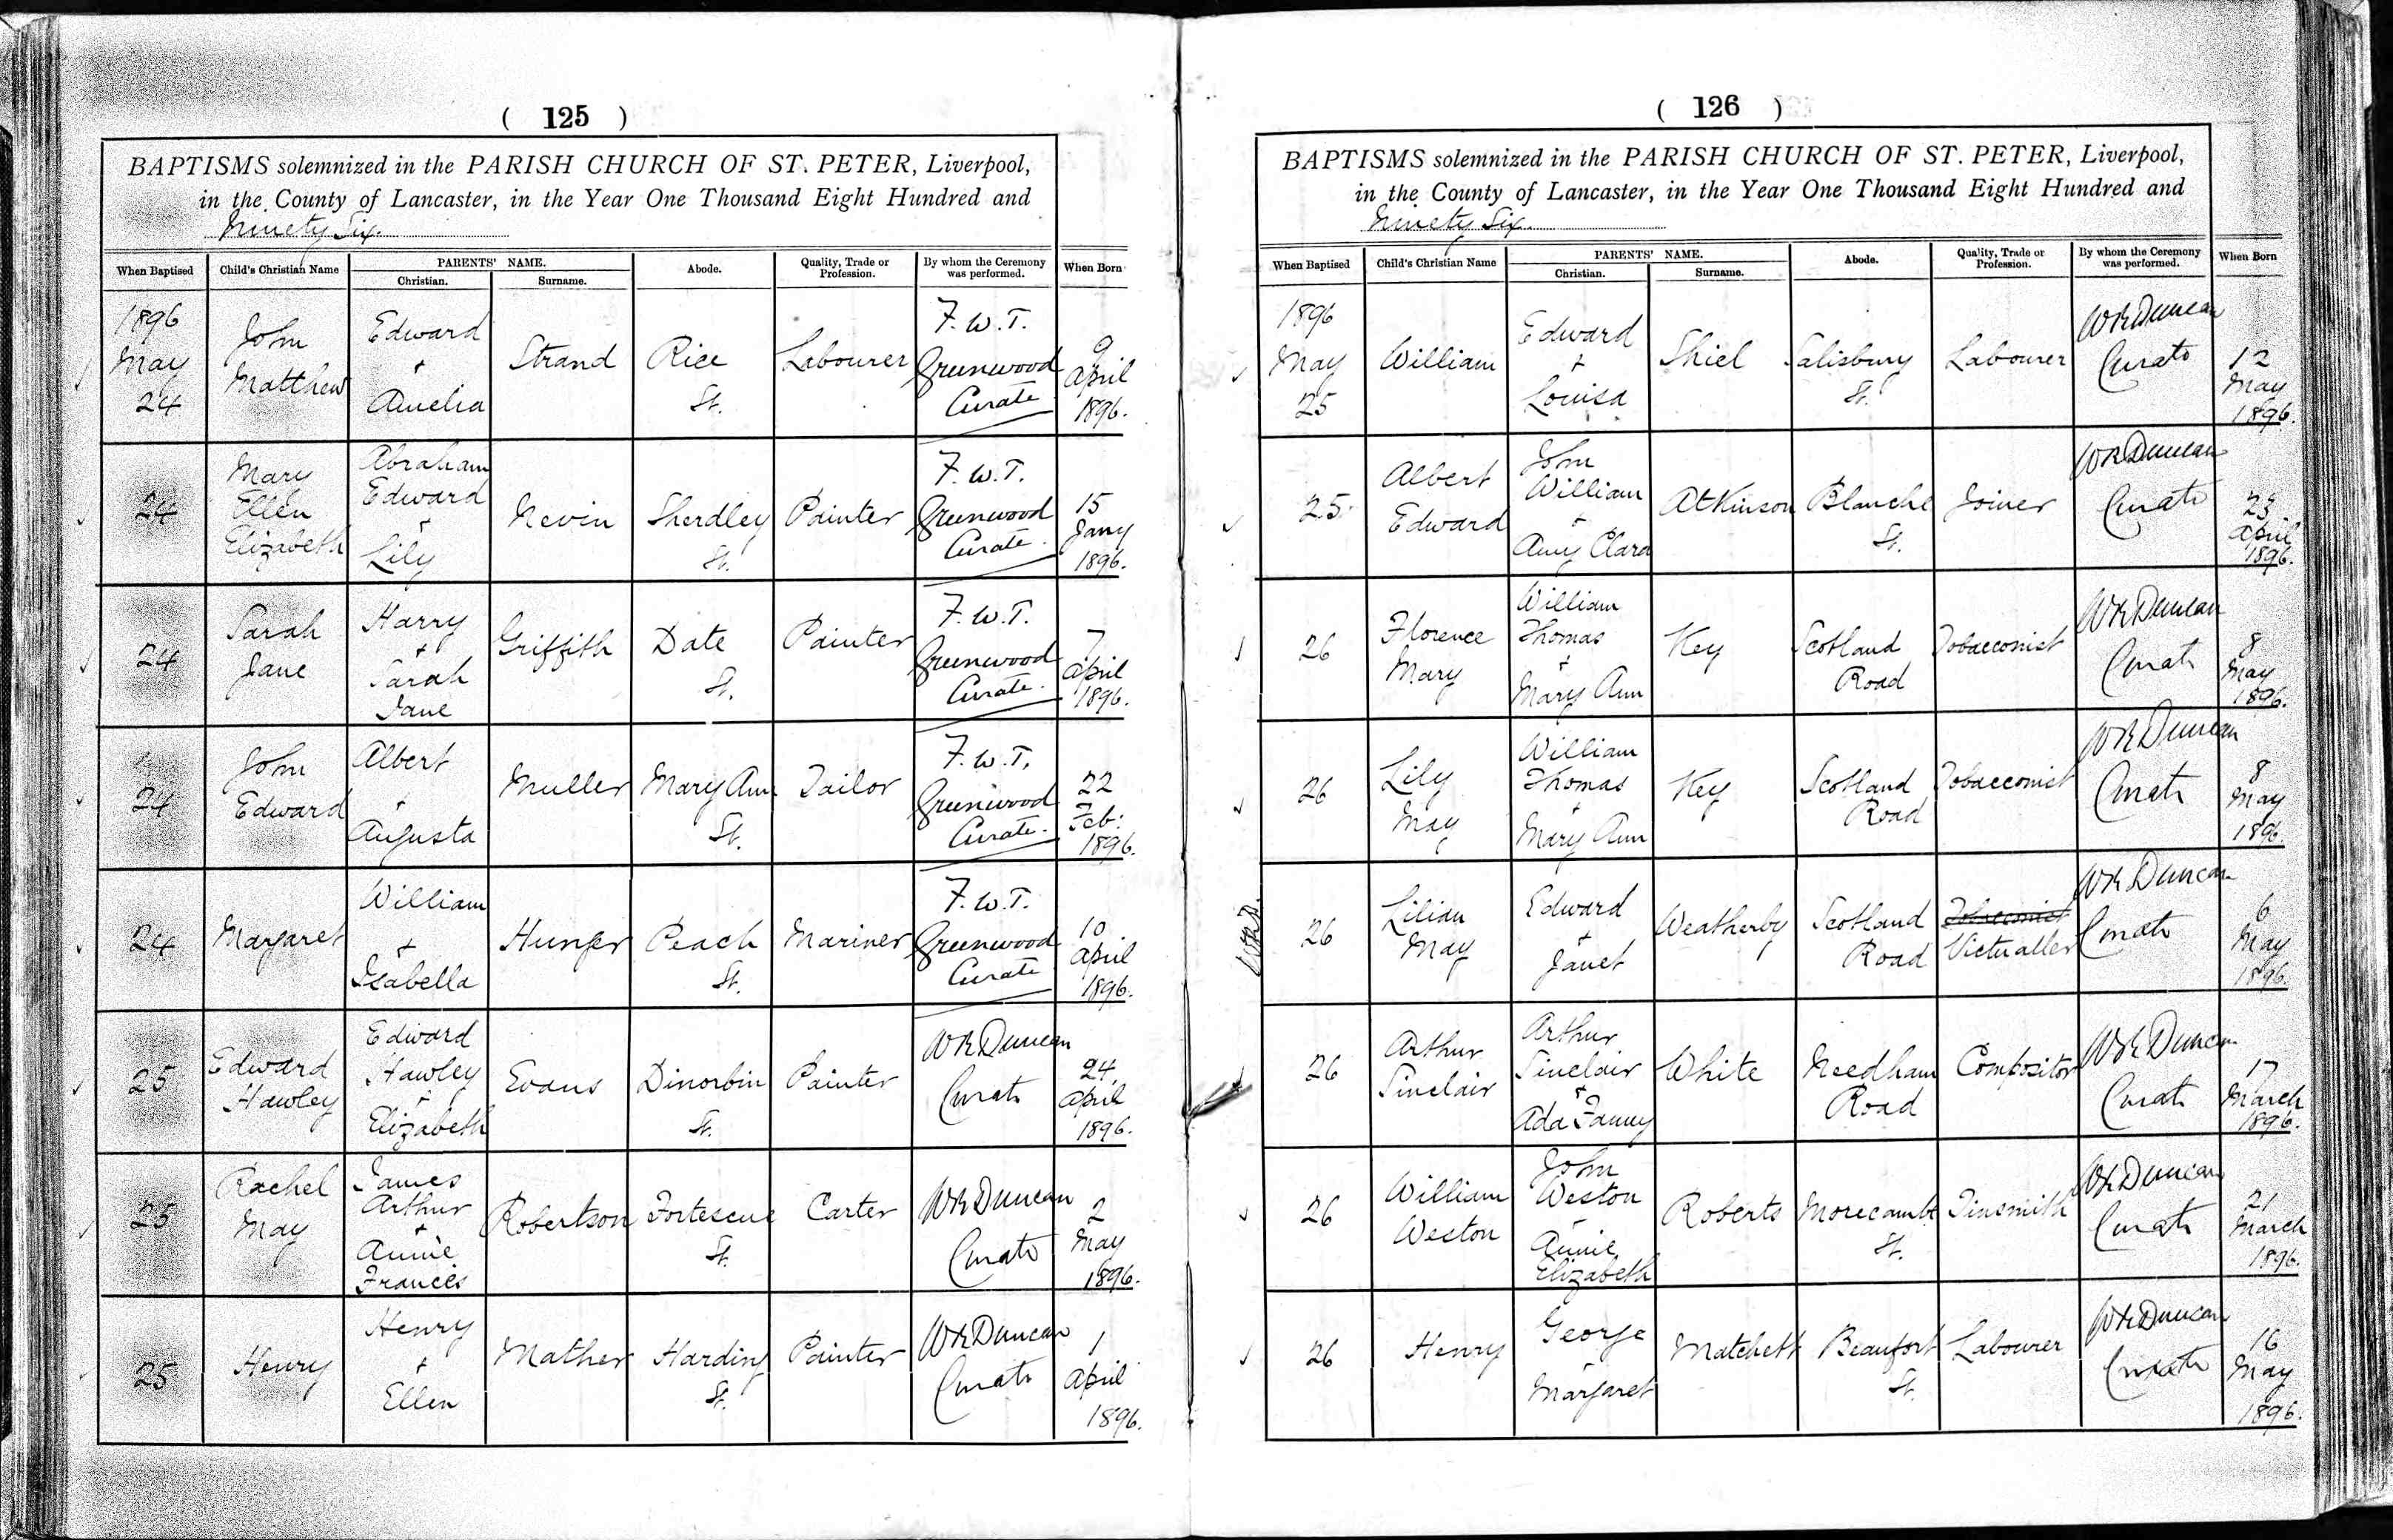 ( 125 )
BAPTISMS solemnized in the PARISH CHURCH OF ST. PETER, Liverpool,
in the County of Lancaster, in the Year One Thousand Eight Hundred and
Ninety Six.
When Baptised Child's Christian Name PARENTS' NAME. Christian. Surname. Abode. Quality, Trade or Profession. By whom the Ceremony was performed. When Born
1896 May 24 John Matthew Edward + Amelia Strand Rice St. Labourer F. W. T. Greenwood Curate 9 April 1896.
24 Mary Ellen Elizabeth Abraham Edward + Lily Nevin Sherdley St. Painter F. W. T. Greenwood Curate. 15 Jany 1896.
24 Sarah Jane Harry + Sarah Jane Griffith Date St. Painter F. W. T. Greenwood Curate. 7 April 1896.
24 John Edward Albert + Augusta Muller Mary Ann St. Tailor F. W. T. Greenwood Curate. 22 Feb: 1896.
24 Margaret William + Isabella Hunter Peach St. Mariner F. W. T. Greenwood Curate 10 April 1896.
25 Edward Hawley Edward Hawley + Elizabeth Evans Dinorbin St. Painter W R Duncan Curate 24 April 1896.
25 Rachel May James Arthur + Annie Frances Robertson Fortescue St. Carter W R Duncan Curate 2 May 1896.
25 Henry Henry + Ellen Mather Harding St. Painter W R Duncan Curate 1 April 1896.
( 126 )
BAPTISMS solemnized in the PARISH CHURCH OF ST. PETER, Liverpool,
in the County of Lancaster, in the Year One Thousand Eight Hundred and
Ninety Six.
When Baptised Child's Christian Name PARENTS' NAME. Christian. Surname. Abode. Quality, Trade or Profession. By whom the Ceremony was performed. When Born
1896 May 25 William Edward + Louisa Shiel Salisbury St. Labourer W R Duncan Curate 12 May 1896.
25. Albert Edward John William + Amy Clara Atkinson Blanche St. Joiner W R Duncan Curate 23 April 1896.
26 Florence Mary William Thomas + Mary Ann Key Scotland Road Tobacconist W R Duncan Curate 8 May 1896.
26 Lily May William Thomas + Mary Ann Key Scotland Road Tobacconist W R Duncan Curate 8 May 1896.
26 Lilian May Edward + Janet Weatherby Scotland Road Tobacconist Victualler W R Duncan Curate 6 May 1896.
26 Arthur Sinclair Arthur Sinclair + Ada Fanny White Needham Road Compositor W R Duncan Curate 17 March 1896.
26 William Weston John Weston + Annie Elizabeth Roberts Morecambe St. Tinsmith W R Duncan Curate 21 March 1896.
26 Henry George + Margaret Matchett Beaufort St. Labourer W R Duncan Curate 16 May 1896.